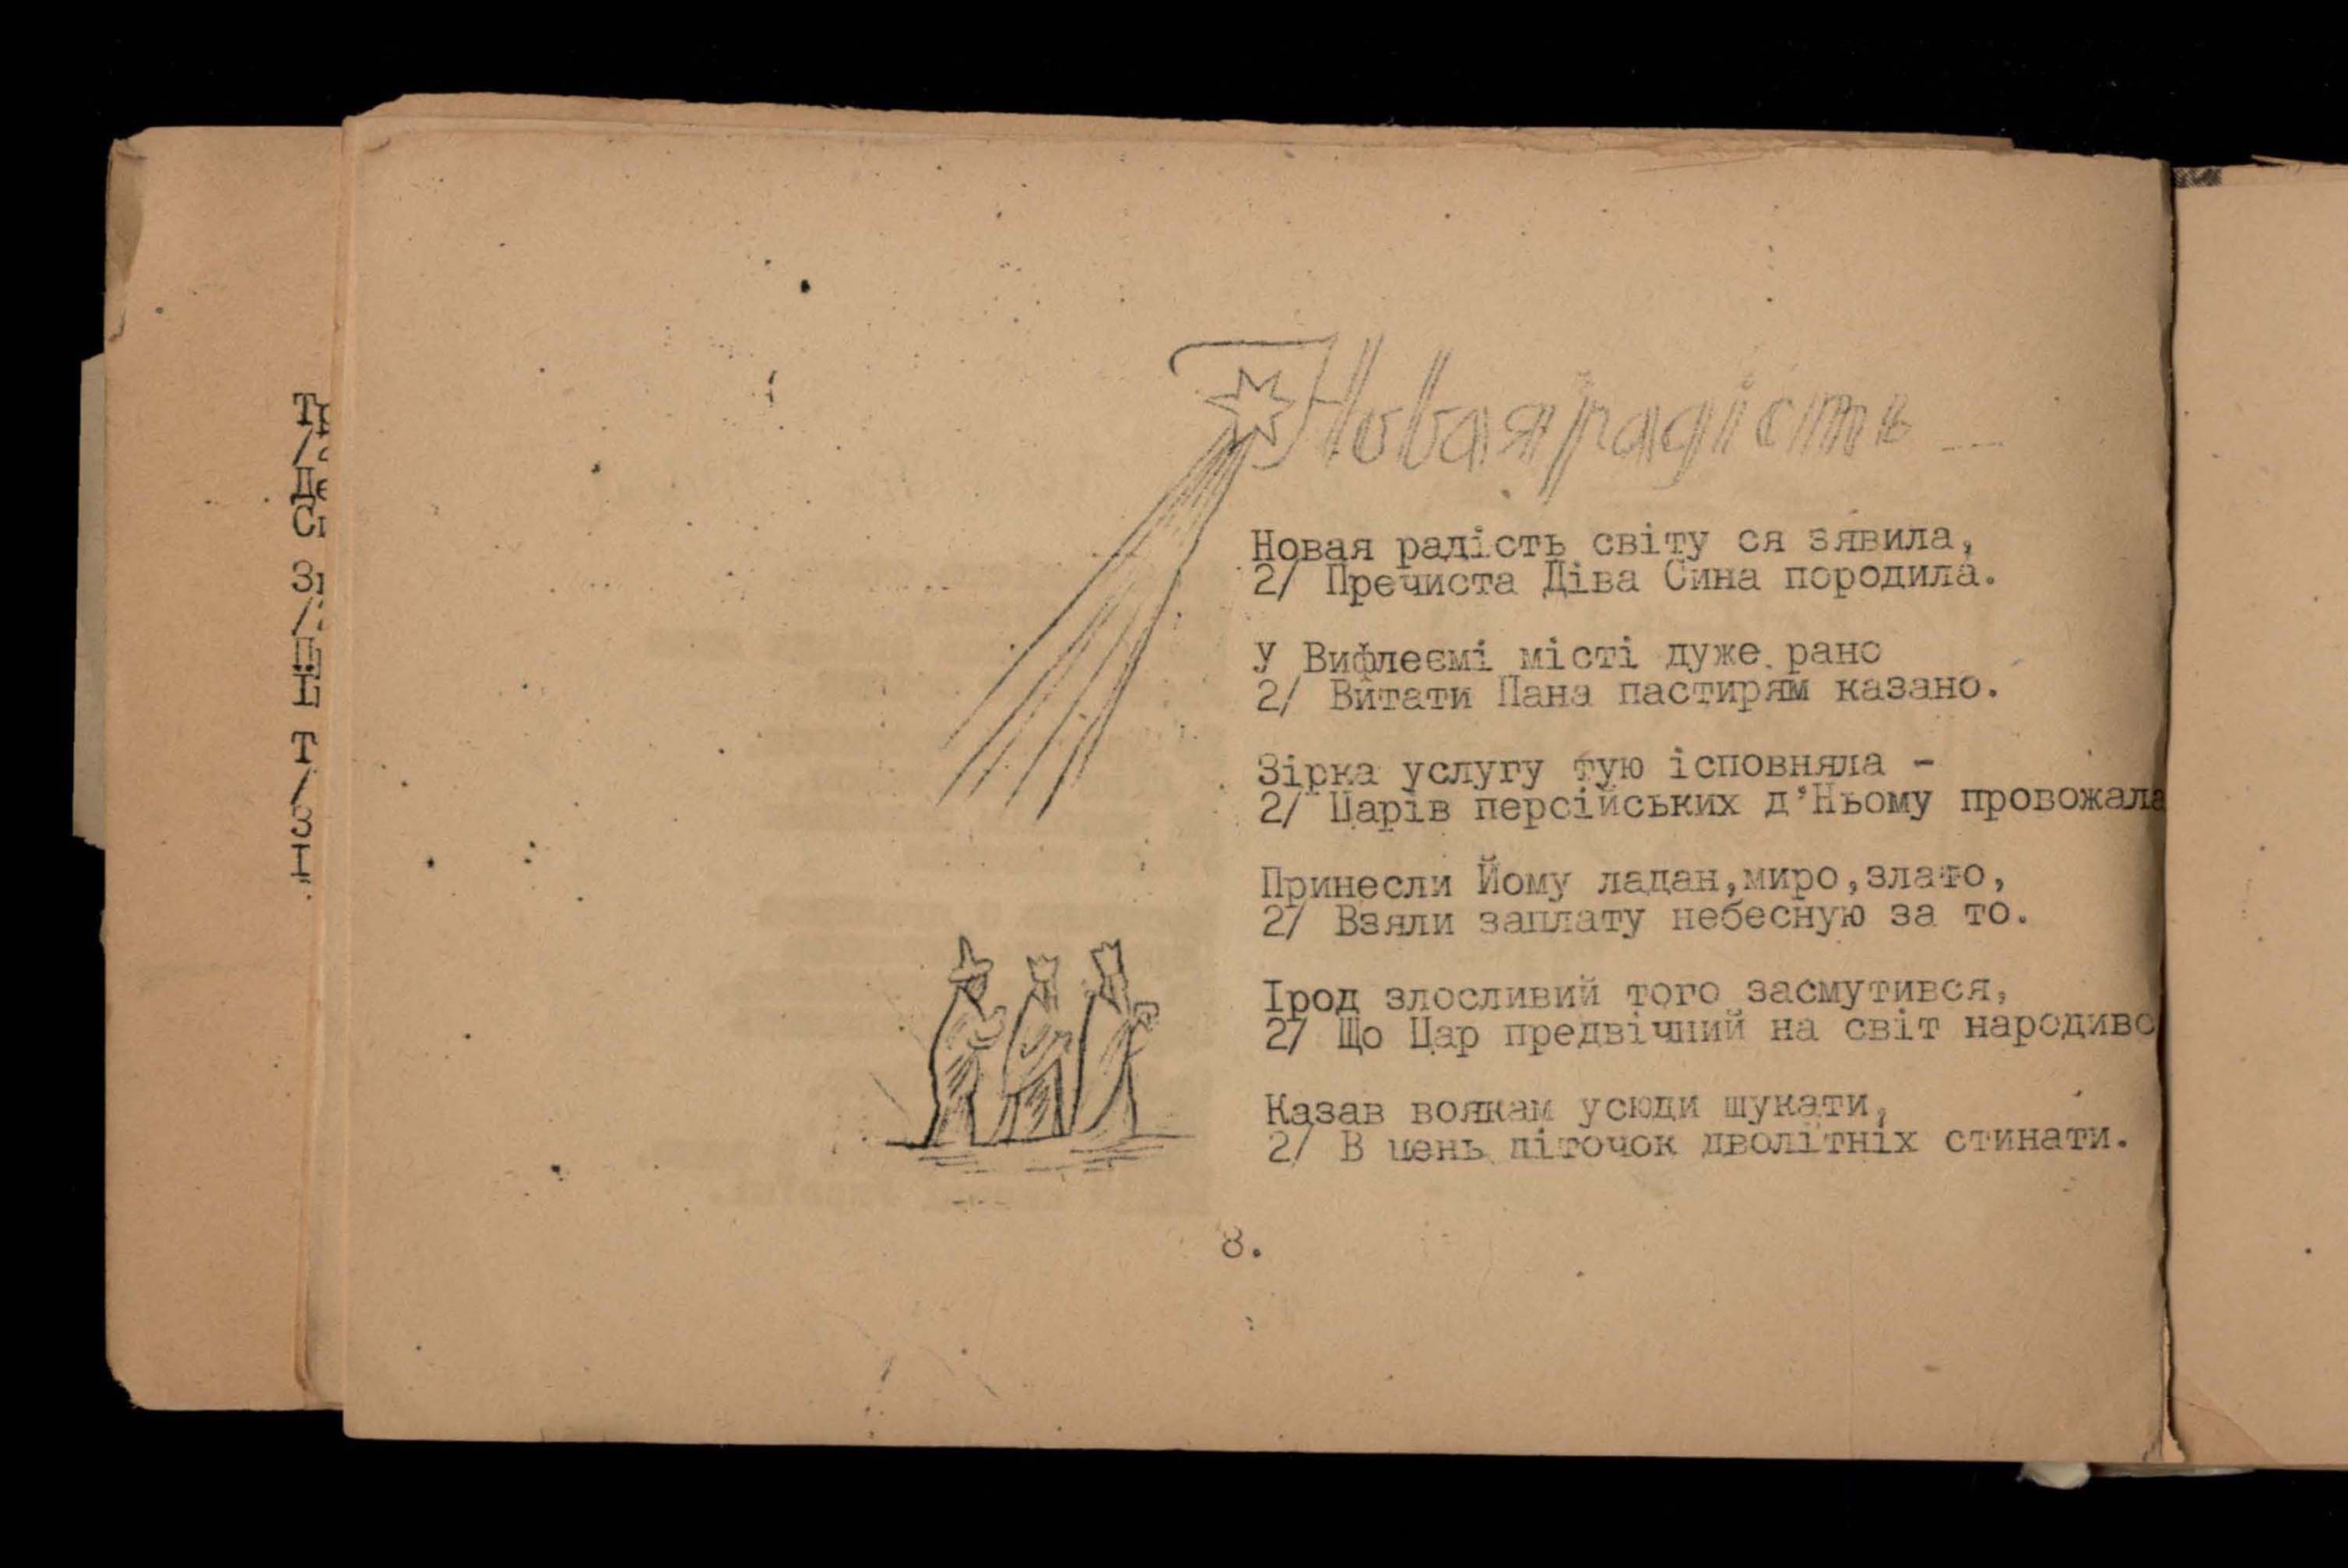 Новая радість ...
Новая радість світу ся зявила,
2/ Пречиста Діва Сина породила.
У Вифлеємі місті дуже рано
2/ Витати Пана пастирям казано.
Зірка услугу тую ісповняла -
2/ Царів персійських д'Ньому провожала
Принесли Йому ладан,миро,злато,
2/ Взяли заплату небесную за то.
Ірод злосливий того засмутився,
2/ Що Цар предвічний на світ народивс
Казав воякам усюди шукати,
2/ В цень діточок дволітніх стинати.
8.